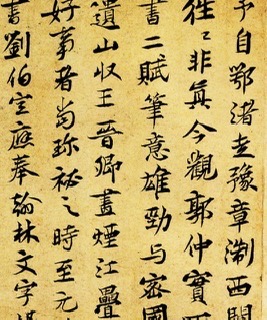 予自鄂渚走豫章淛西閱
徃〻非真今觀郭仲實
書二賦筆意雄勁与密國
遺山収王晉卿畫煙江疊
好事者尚珎祕之時至元
書劉伯宣應奉翰林文字